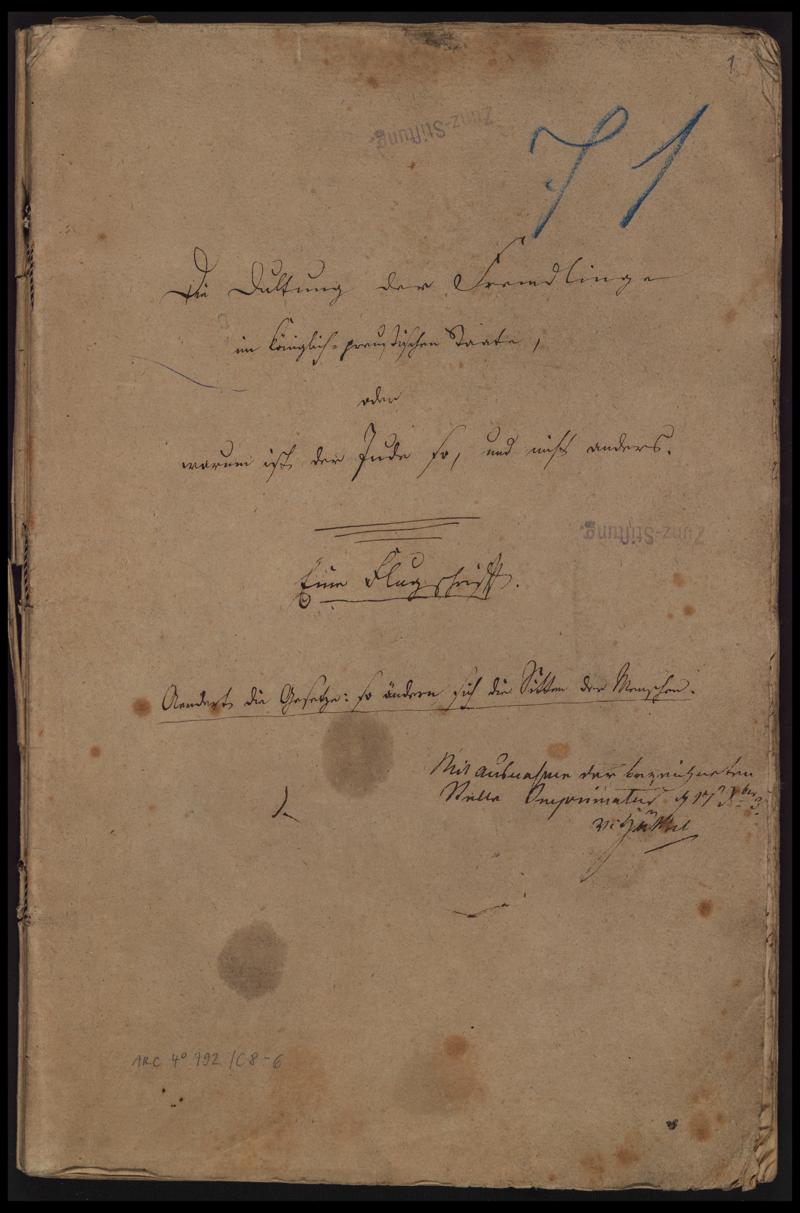 1
Zunz-Stiftung.
71
Die Duldung der Fremdlinge
im königlich-preußischen Staate,
oder
warum ist der Jude so, und nicht anders.
Zunz-Stiftung.
Eine Flugschrift.
Aendert die Gesetze: so ändern sich die Sitten der Menschen.
Mit Ausnahme der bezeichneten
Stelle Imprimatur
ARC 4° 792/C8-6